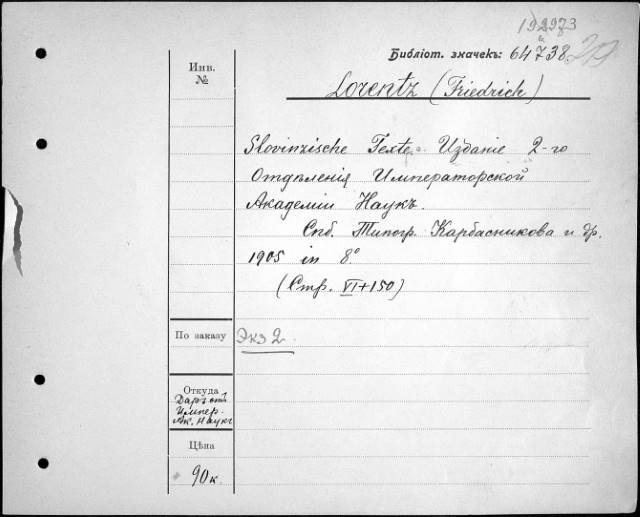 192973
и
Библіот. значекъ: 64738
Инв.
№
Lorentz (Friedrich)
Slovinzische Texte. Изданіе 2-го
Отдѣленія Императорской
Академіи Наукъ.
Спб. Типогр. Карбасникова и др.
1905 in 8°
(Стр. VI+150)
По заказу
Экз 2.
Откуда
Даръ отъ
Импер.
Ак. Наукъ
Цѣна
90 к.